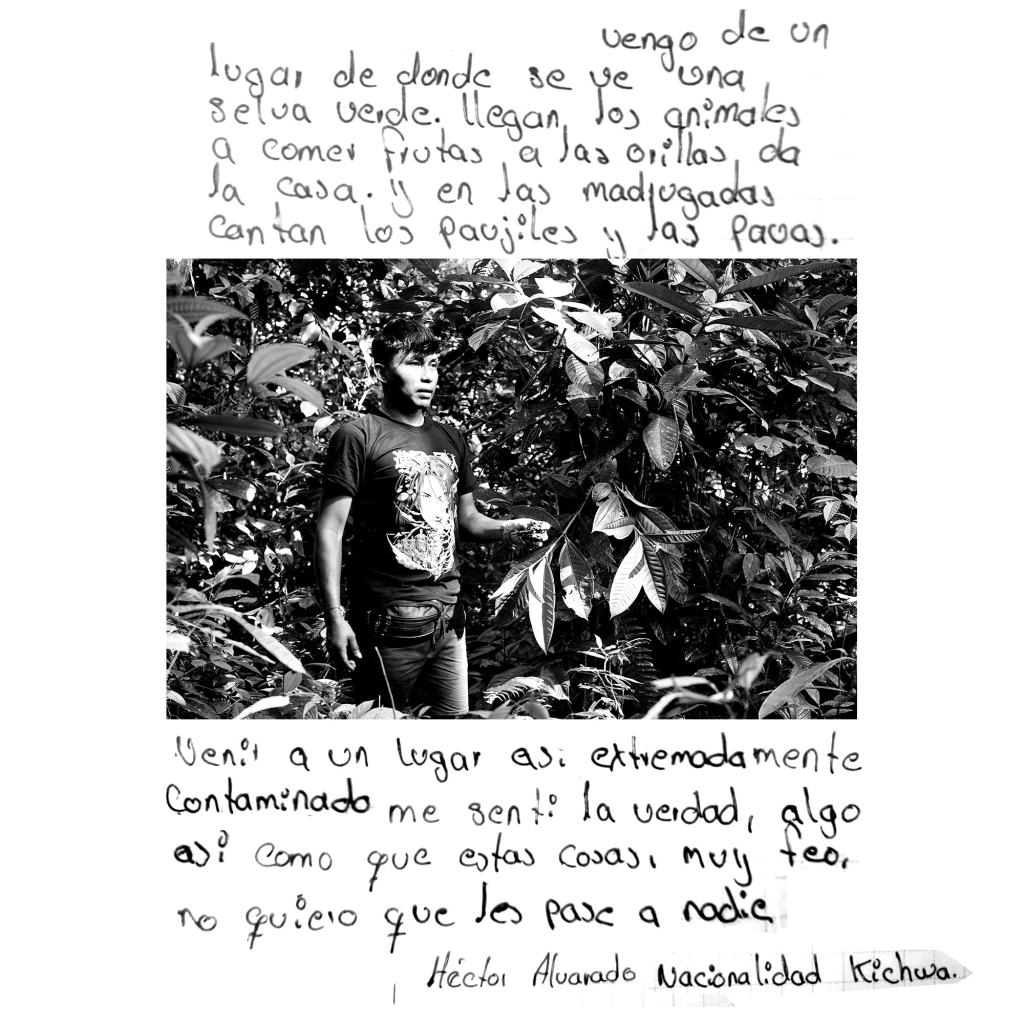 vengo de un
lugar de donde se ve una
selva verde. llegan los animales
a comer frutas a las orillas da
la casa. y en las madrugadas
cantan los paujiles y las pavas.
Venir a un lugar asi extremadamente
Contaminado me senti la verdad, algo
asi como que estas cosas, muy feo,
no quiero que les pase a nadie
Héctor Alvarado Nacionalidad Kichwa.